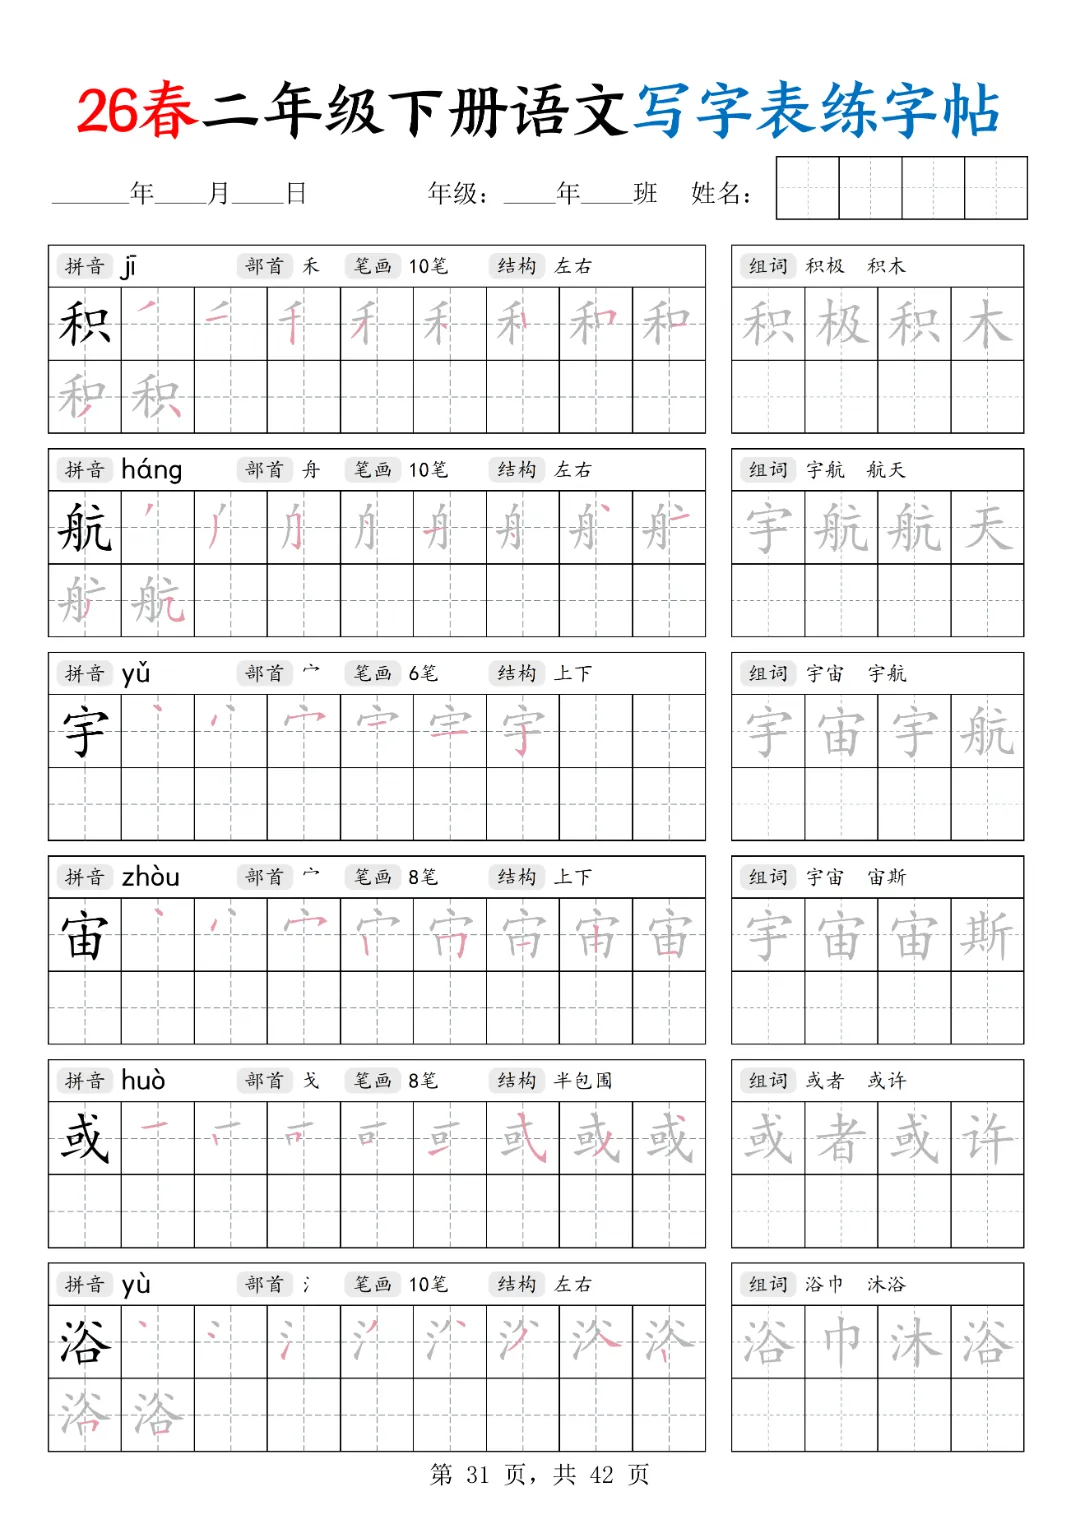 26春二年级下册语文写字表练字帖
______年____月____日 年级：____年____班 姓名：
拼音 jī 部首 禾 笔画 10笔 结构 左右 组词 积极 积木
积 积 极 积 木
积 积
拼音 háng 部首 舟 笔画 10笔 结构 左右 组词 宇航 航天
航 宇 航 航 天
航 航
拼音 yǔ 部首 宀 笔画 6笔 结构 上下 组词 宇宙 宇航
宇 宇 宇 宙 宇 航
拼音 zhòu 部首 宀 笔画 8笔 结构 上下 组词 宇宙 宙斯
宙 宙 宇 宙 宙 斯
拼音 huò 部首 戈 笔画 8笔 结构 半包围 组词 或者 或许
或 或 或 者 或 许
拼音 yù 部首 氵 笔画 10笔 结构 左右 组词 浴巾 沐浴
浴 浴 巾 沐 浴
浴 浴
第 31 页，共 42 页